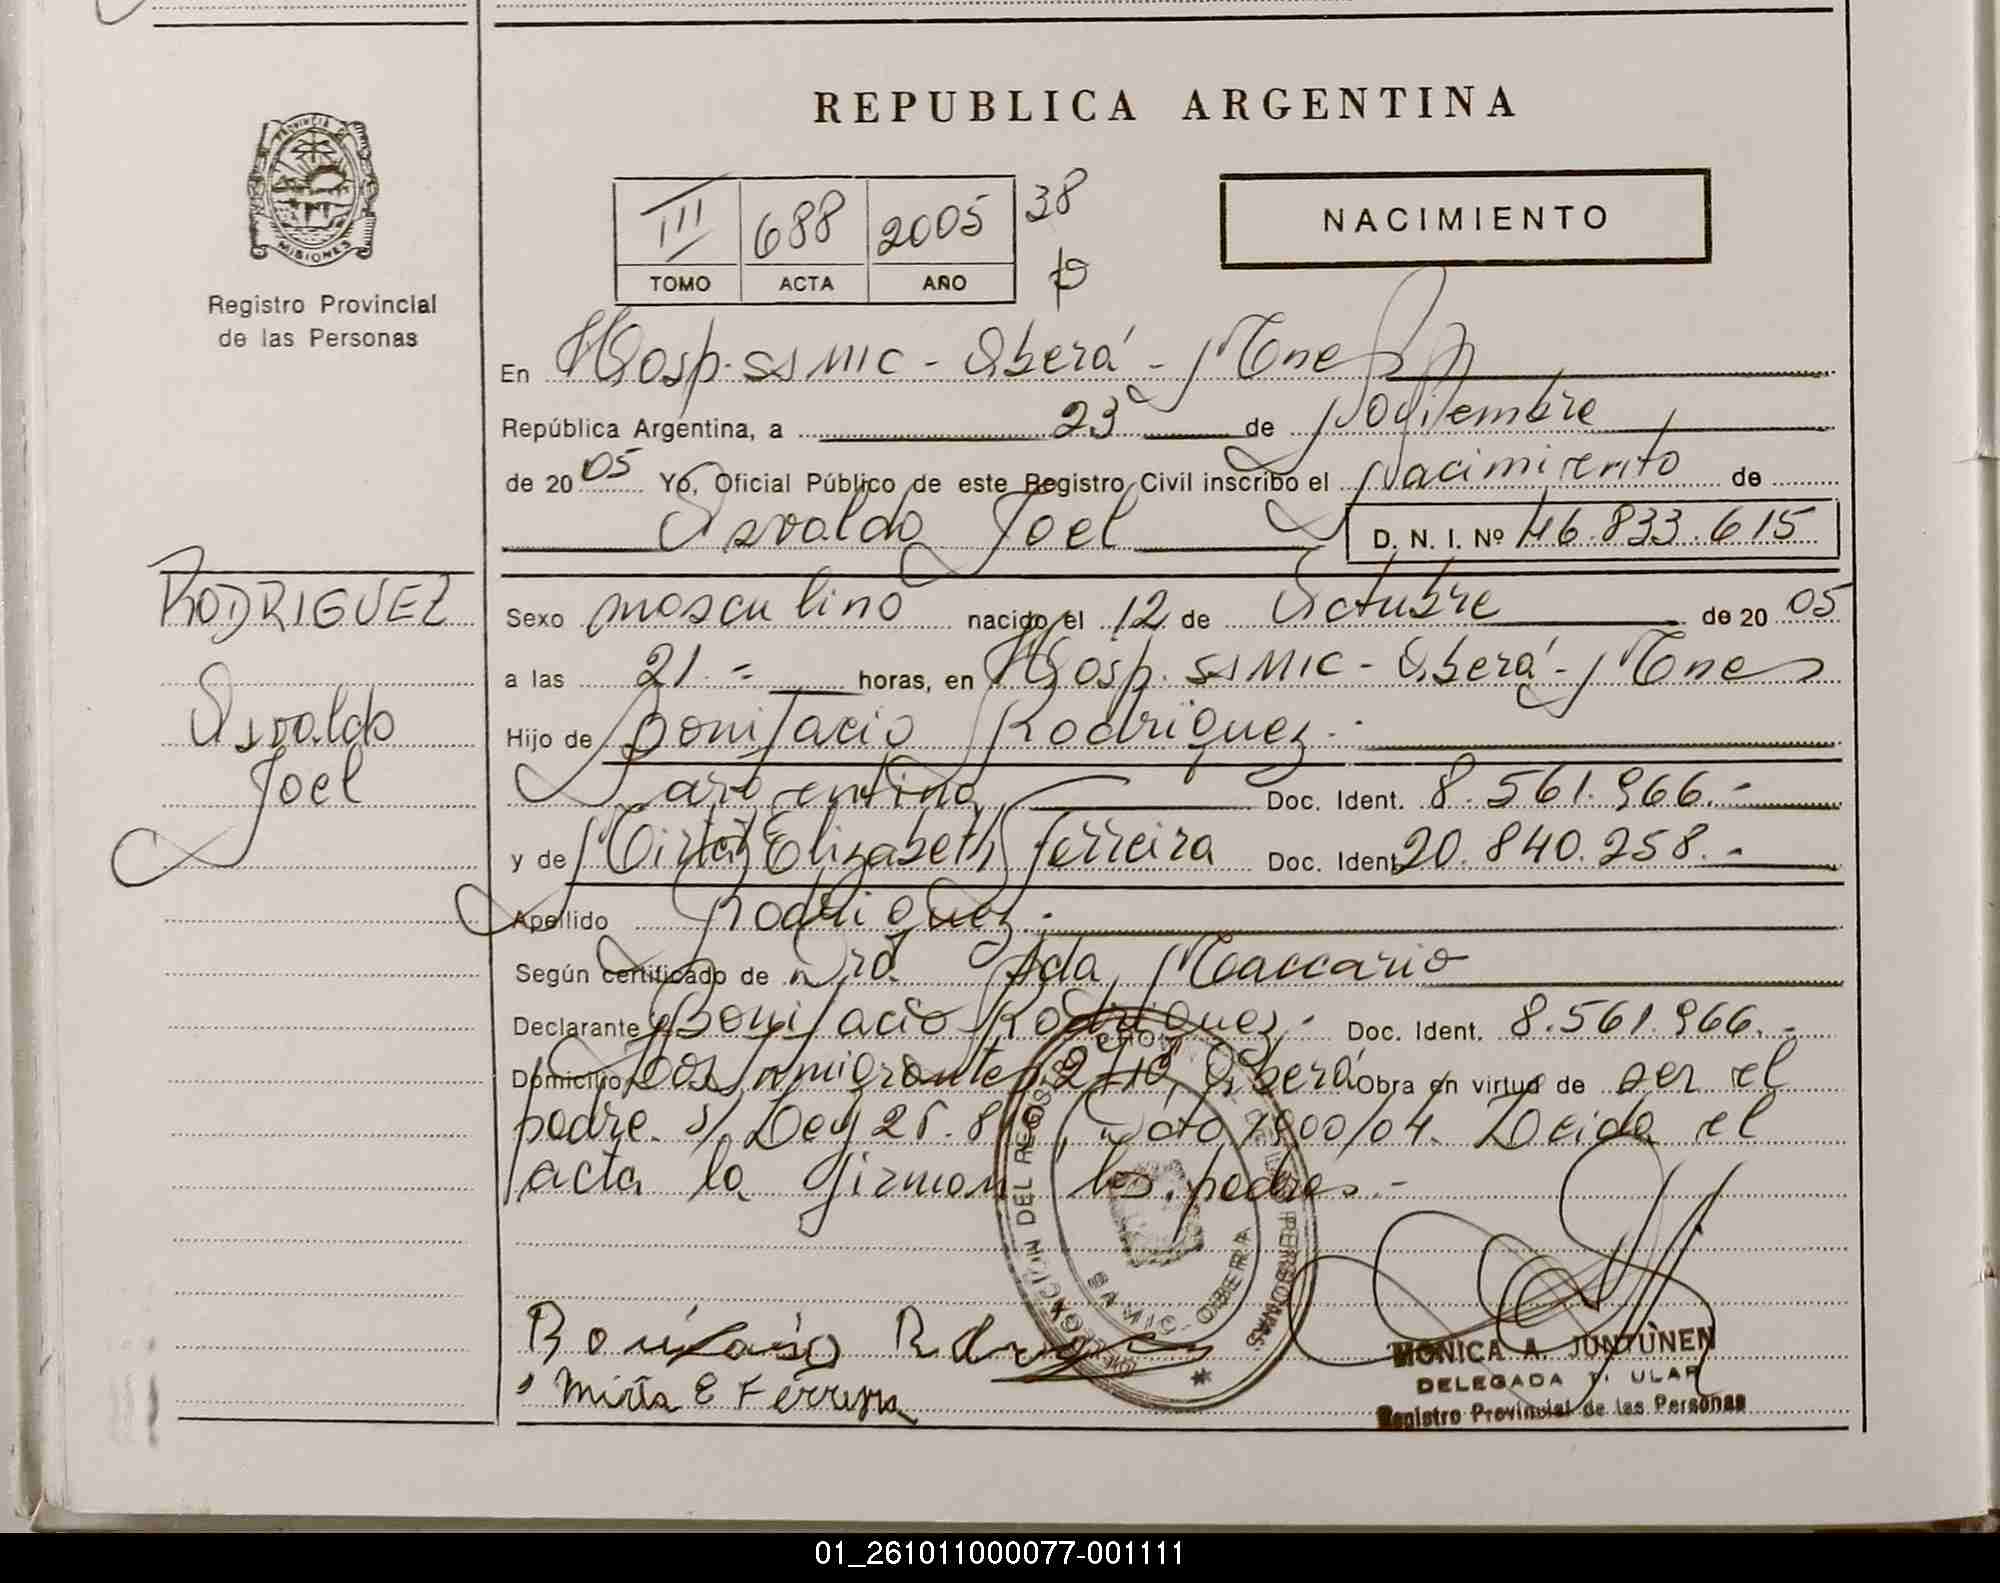 REPUBLICA ARGENTINA
PROVINCIA DE MISIONES
Registro Provincial
de las Personas
III 688 2005 38
TOMO ACTA AÑO
NACIMIENTO
En Hosp. SAMIC - Oberá - Mnes
República Argentina, a 23 de Noviembre
de 2005 Yo, Oficial Público de este Registro Civil inscribo el Nacimiento de
Osvaldo Joel D. N. I. Nº 46.833.615
RODRIGUEZ
Osvaldo
Joel
Sexo masculino nacido el 12 de Octubre de 2005
a las 21.= horas, en Hosp. SAMIC - Oberá - Mnes
Hijo de Bonifacio Rodriguez.-
argentina Doc. Ident. 8.561.966.-
y de Mirta Elizabeth Ferreira Doc. Ident. 20.840.258.-
Apellido Rodriguez.-
Según certificado de Dra. Ada Maccario
Declarante Bonifacio Rodriguez.- Doc. Ident. 8.561.966.-
Domicilio Los Inmigrantes Oberá Obra en virtud de ser el
padre. s/ Ley Dcto 1900/04. Leida el
acta la firman los padres.-
SAMIC - OBERA
Mirta E Ferreyra
MONICA A. JUNTUNEN
DELEGADA TITULAR
Registro Provincial de las Personas
01_261011000077-001111